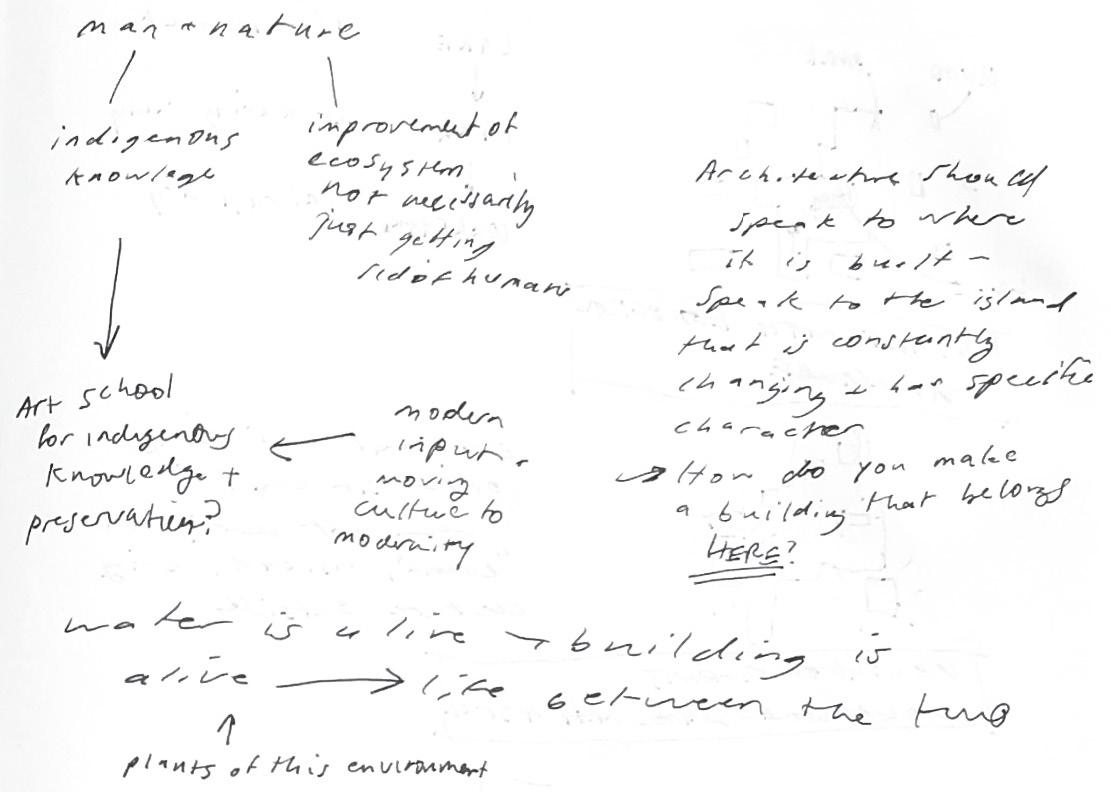 man + nature
indigenous
knowlege
improvement of
ecosystem
not necissarily
just getting
rid of humans
Architecture should
speak to where
it is built -
speak to the island
that is constantly
changing + has specific
character
→ How do you make
a building that belongs
HERE?
Art school
for indigenous
knowledge +
preservation?
modern
input.
moving
culture to
modernity
water is alive → building is
alive → life between the two
plants of this environment